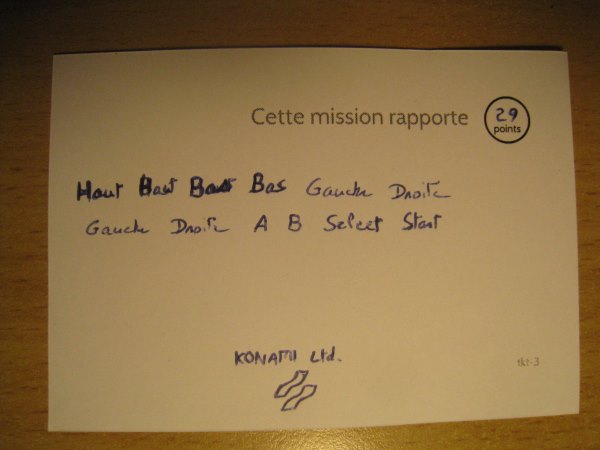 Cette mission rapporte 29 points
Haut Haut Bas Bas Gauche Droite
Gauche Droite A B Select Start
KONAMI Ltd.
tkt-3